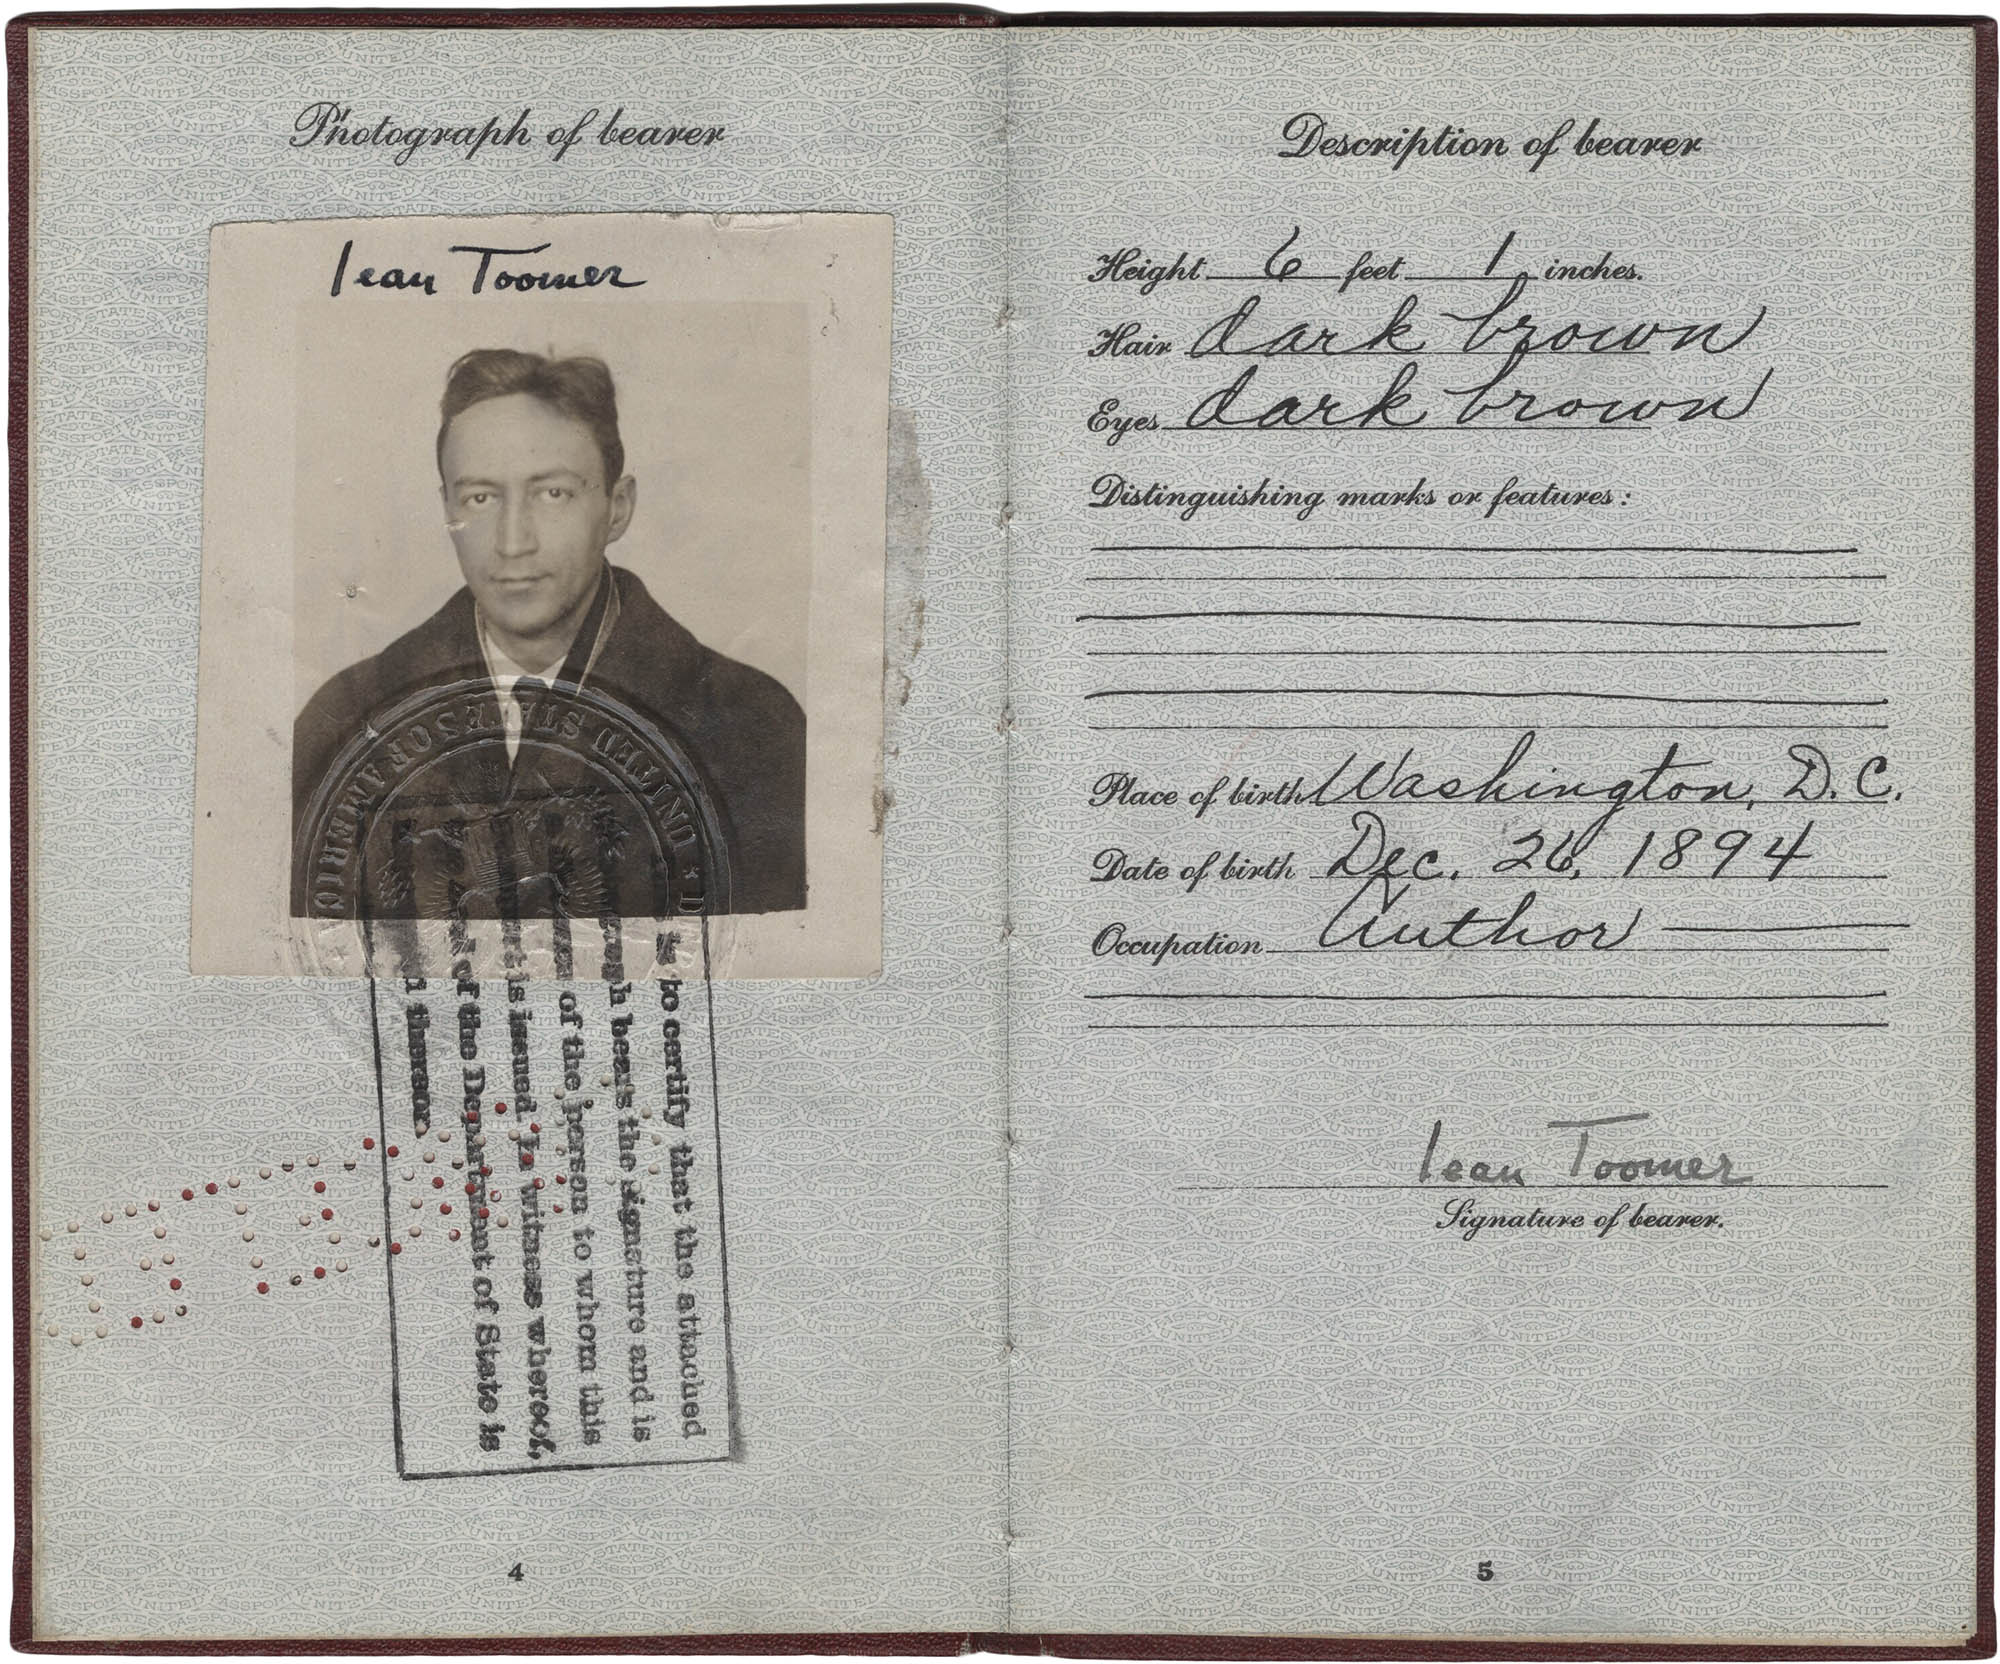 Photograph of bearer
Jean Toomer
UNITED STATES OF AMERICA
to certify that the attached
bears the signature and is
of the person to whom this
is issued. In witness whereof,
of the Department of State is
thereon
4
Description of bearer
Height 6 feet 1 inches.
Hair dark brown
Eyes dark brown
Distinguishing marks or features:
Place of birth Washington, D.C.
Date of birth Dec. 26, 1894
Occupation Author
Jean Toomer
Signature of bearer.
5